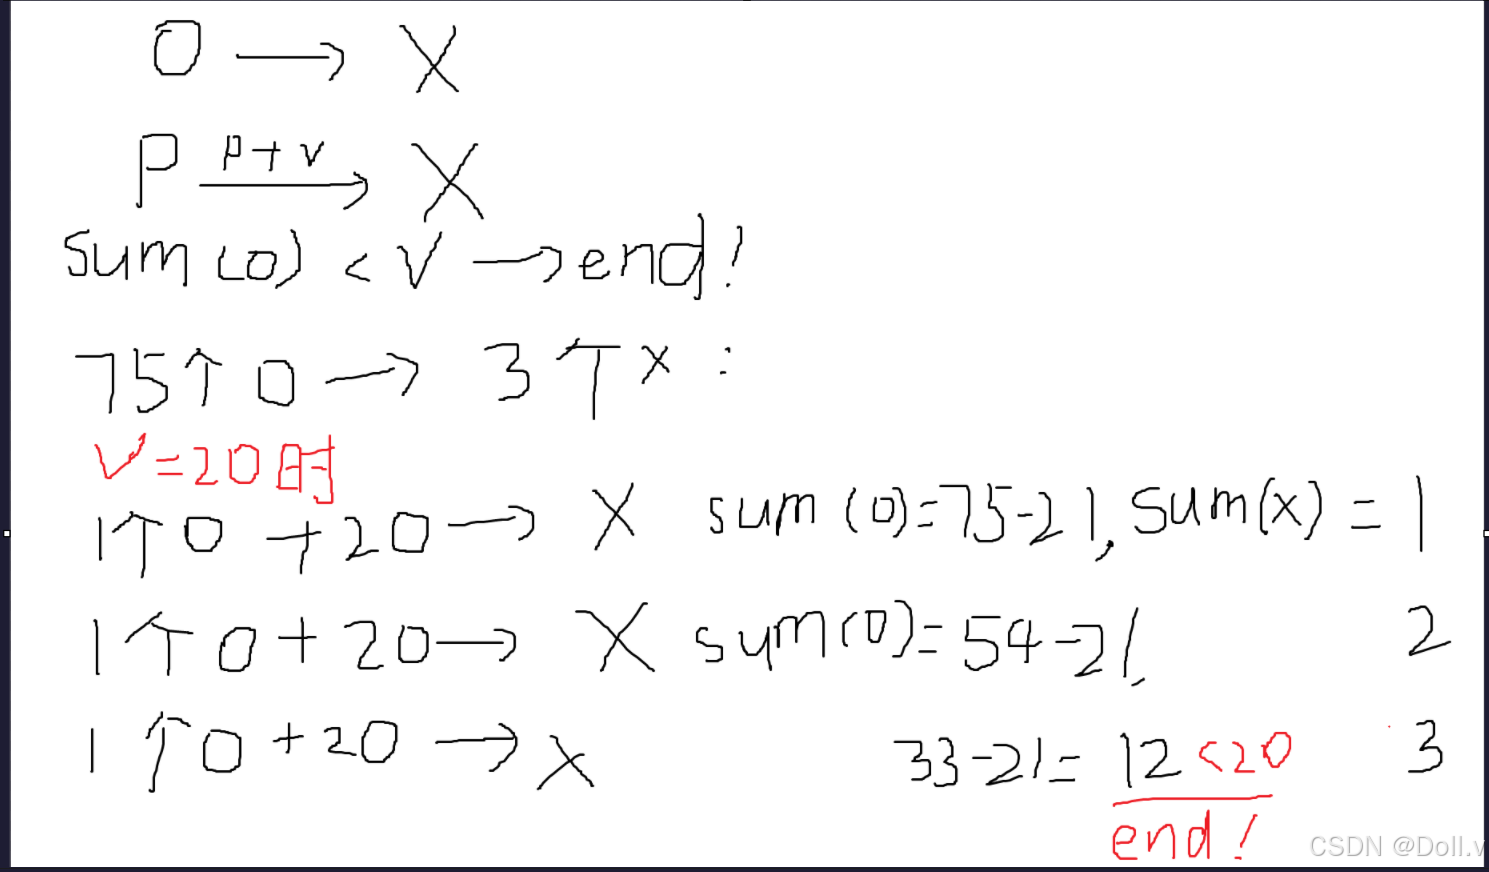 O → X
P —p+v→ X
sum(O) < V → end!
75个O → 3个X :
V=20时
1个O +20 → X sum(O)=75-21, sum(x) = 1
1个O+20 → X sum(O)=54-21, 2
1个O+20 → X 33-21= 12<20 3
end!
CSDN @Doll.v